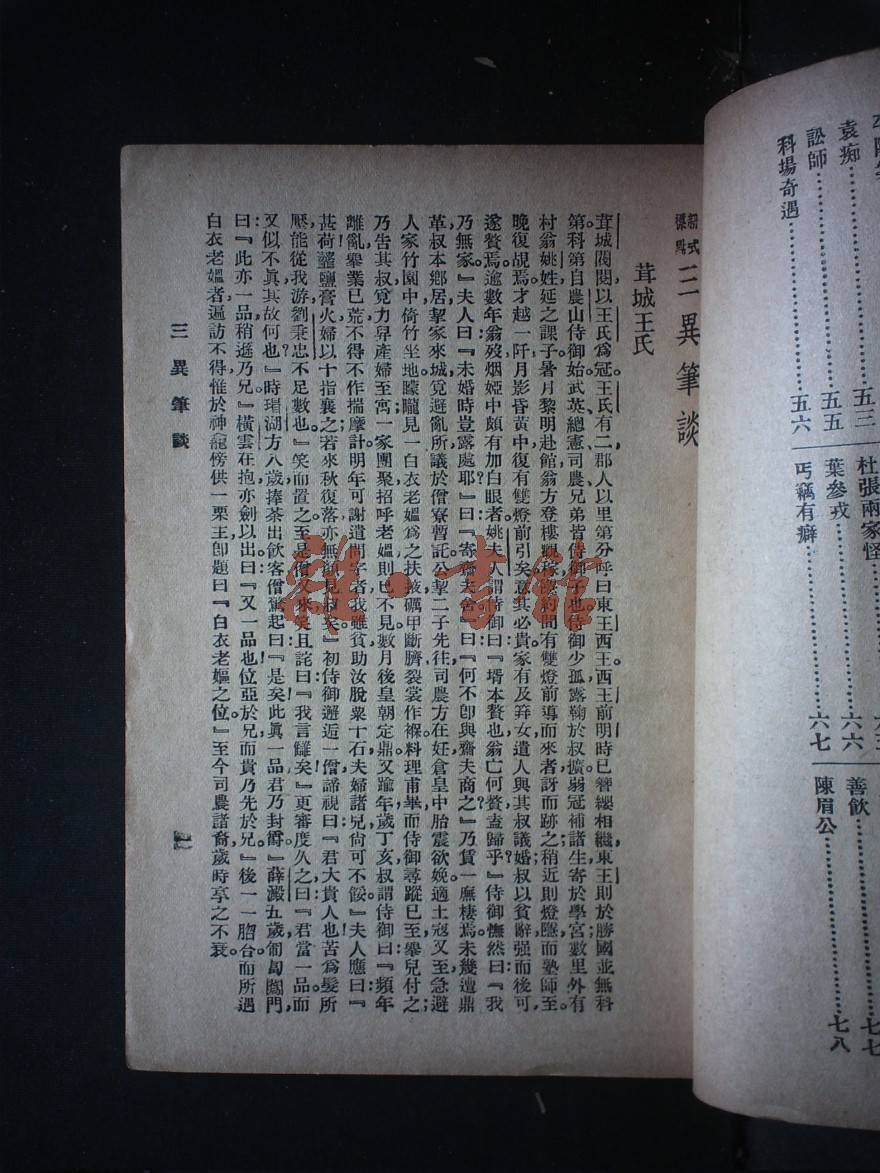 科場奇遇……………五六
訟師……………五五
袁痴……………五三
丐竊有癖……………六七
葉參戎……………六六
杜張兩家怪
陳眉公……………七八
善飲……………七七
新式標點 三異筆談
茸城王氏
茸城閥閱以王氏爲冠王氏有二郡人以里第分呼曰東王西王。西王前明時已簪纓相繼東王則於勝國並無科
第科第自農山侍御始武英總憲司農兄弟皆侍御子也。侍御少孤露鞠於叔擴弱冠補諸生寄於學宮數里外有
村翁姚姓延之課子暑月黎明赴館翁方登樓 間有雙燈前導而來者訝而跡之稍近則燈隱而塾師至。
晚復覘焉才越一阡月影昏黃中復有雙燈前引矣意其必貴家有及笄女遣人與其叔議婚叔以貧辭强而後可,
遂贅焉。逾數年翁歿烟婭中頗有加白眼者。姚夫人謂侍御曰『壻本贅也翁亡何贅盍歸乎』侍御憮然曰『我
乃無家』夫人曰『未婚時豈露處耶』曰『寄齋夫舍』曰『何不卽與齋夫商之』乃賃一廡棲焉。未幾遭鼎
革叔本鄉居挈家來城覓避亂所議於僧寮暫託公挈二子先往司農方在妊倉皇中胎震欲娩適土寇又至急避
人家竹園中倚竹坐地朦朧見一白衣老嫗爲之扶掖礪甲斷臍裂裳作褓料理甫畢而侍御尋蹤已至舉兒付之;
乃告其叔覓力舁產婦至寓一家團聚招呼老嫗則已不見數月後皇朝定鼎又踰年歲丁亥叔謂侍御曰『頻年
離亂舉業已荒不得不作揣摩計明年可謝遣問字者我雖貧助汝脫粟十石夫婦諸兒尙可不餒』夫人應曰『
甚荷虀鹽膏火婦以十指襄之若來秋復落亦無顏見叔矣』初侍御邂逅一僧諦視曰『君大貴人也苦爲髮所
壓能從我游劉秉忠不足數也』笑而置之至是僧又來笑且詫曰『我言讎矣』更審度久之曰『君當一品而
又似不眞其故何也』時瑁湖方八歲捧茶出飲客僧驚起曰『是矣此眞一品君乃封爵』薛澱五歲匍匐闖門
曰『此亦一品稍遜乃兄』橫雲在抱亦劍以出曰『又一品也位亞於兄而貴乃先於兄』後一一脗合而所遇
白衣老嫗者遍訪不得惟於神龕傍供一栗主卽題曰『白衣老嫗之位』至今司農諸裔歲時享之不衰。
三異筆談
一
雅·書館